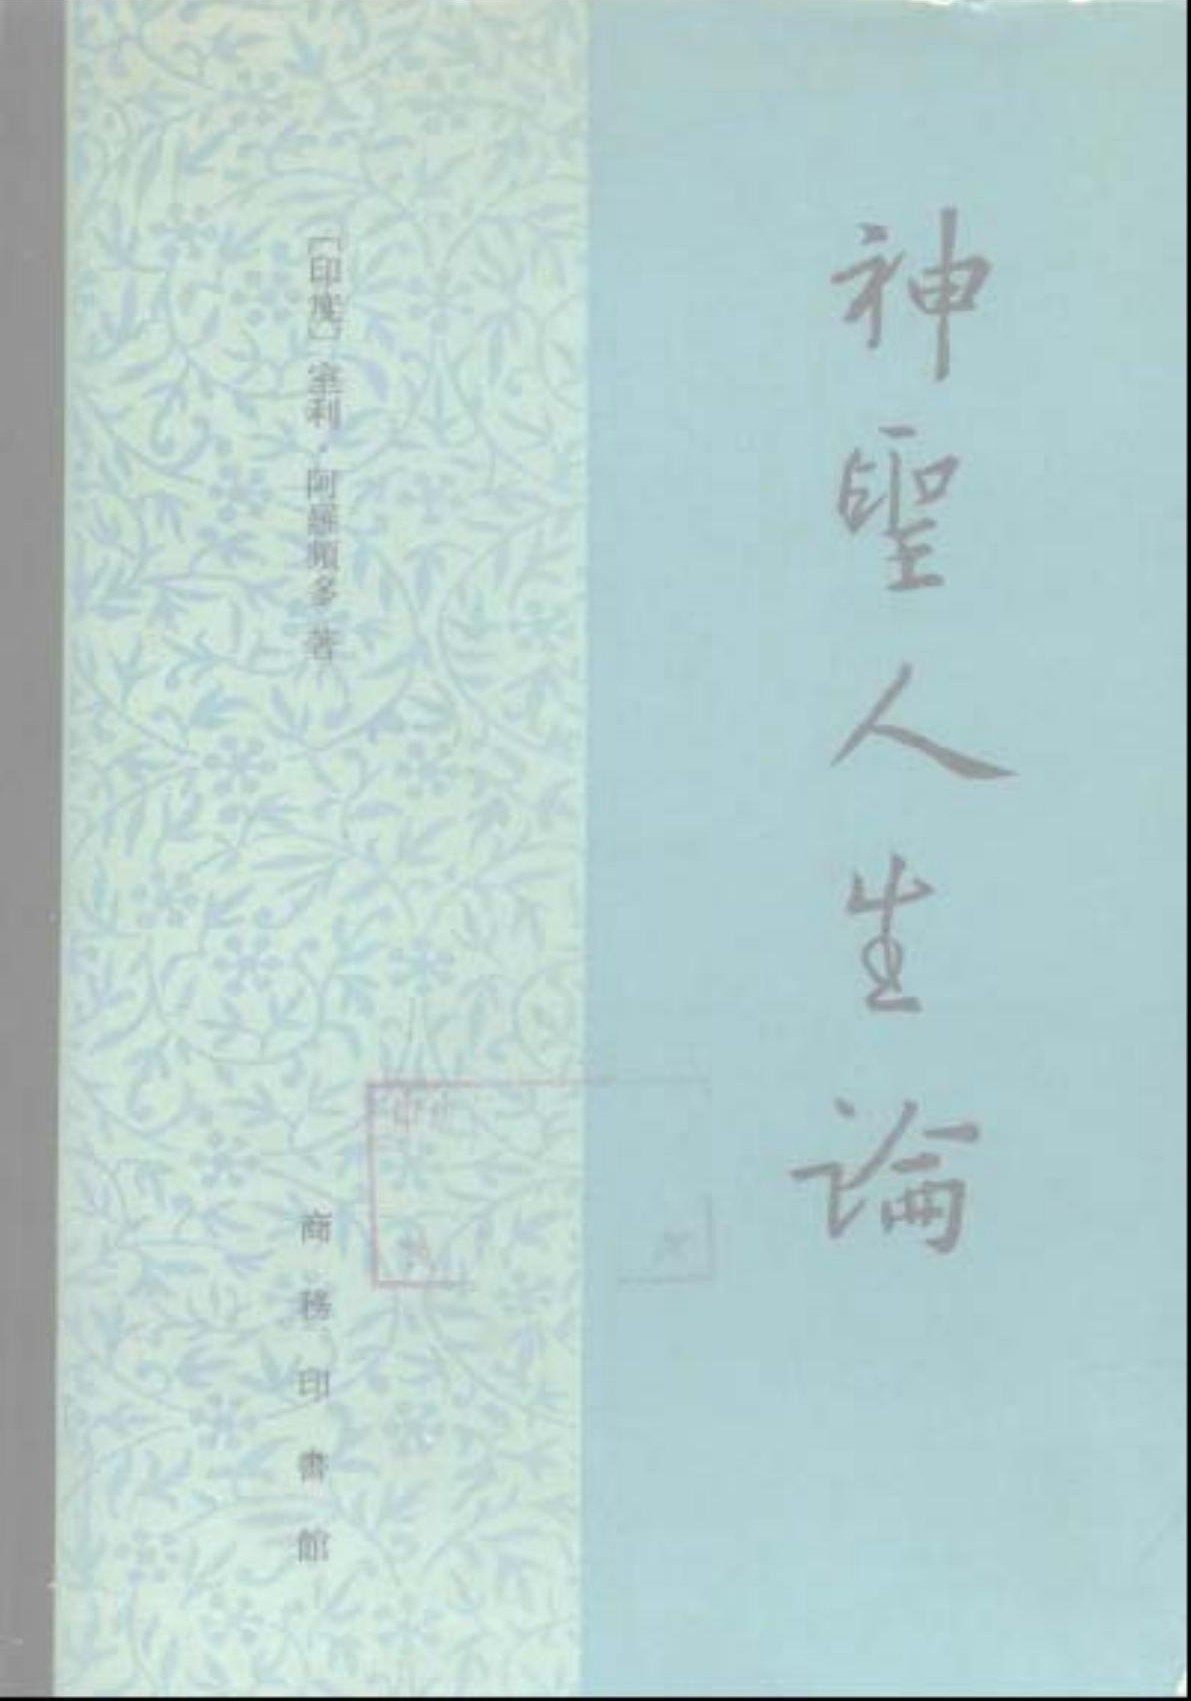 神聖人生論
［印度］室利·阿羅頻多 著
商務印書館